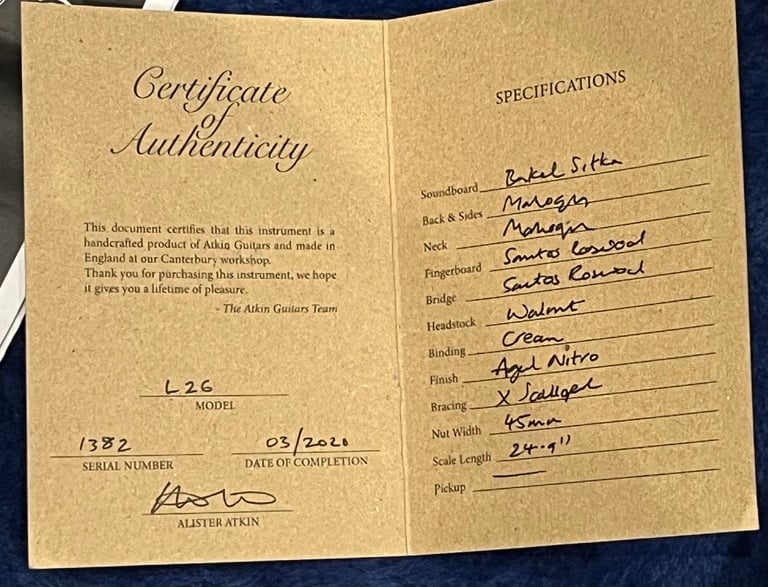 Certificate
of
Authenticity
This document certifies that this instrument is a
handcrafted product of Atkin Guitars and made in
England at our Canterbury workshop.
Thank you for purchasing this instrument, we hope
it gives you a lifetime of pleasure.
- The Atkin Guitars Team
L26
MODEL
1382
SERIAL NUMBER
03/2020
DATE OF COMPLETION
ALISTER ATKIN
SPECIFICATIONS
Soundboard Baked Sitka
Back & Sides Mahogany
Neck Mahogany
Fingerboard Santos Roswood
Bridge Santos Roswood
Headstock Walnut
Binding Cream
Finish Aged Nitro
Bracing X Scalloped
Nut Width 45mm
Scale Length 24.9"
Pickup —